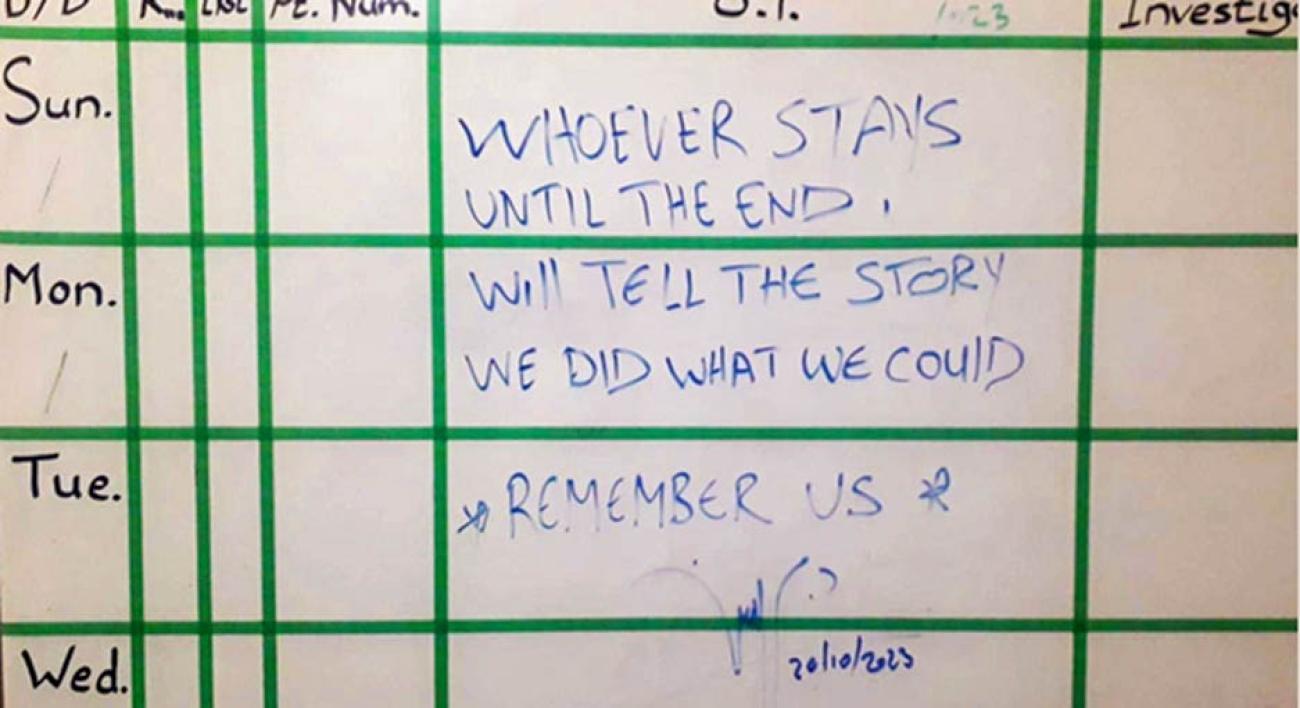 Pt. Num.
Investig
Sun.
WHOEVER STAYS
UNTIL THE END.
Mon.
Will TELL THE STORY
WE DID WHAT WE COULD
Tue.
* REMEMBER US *
Wed.
20/10/2023